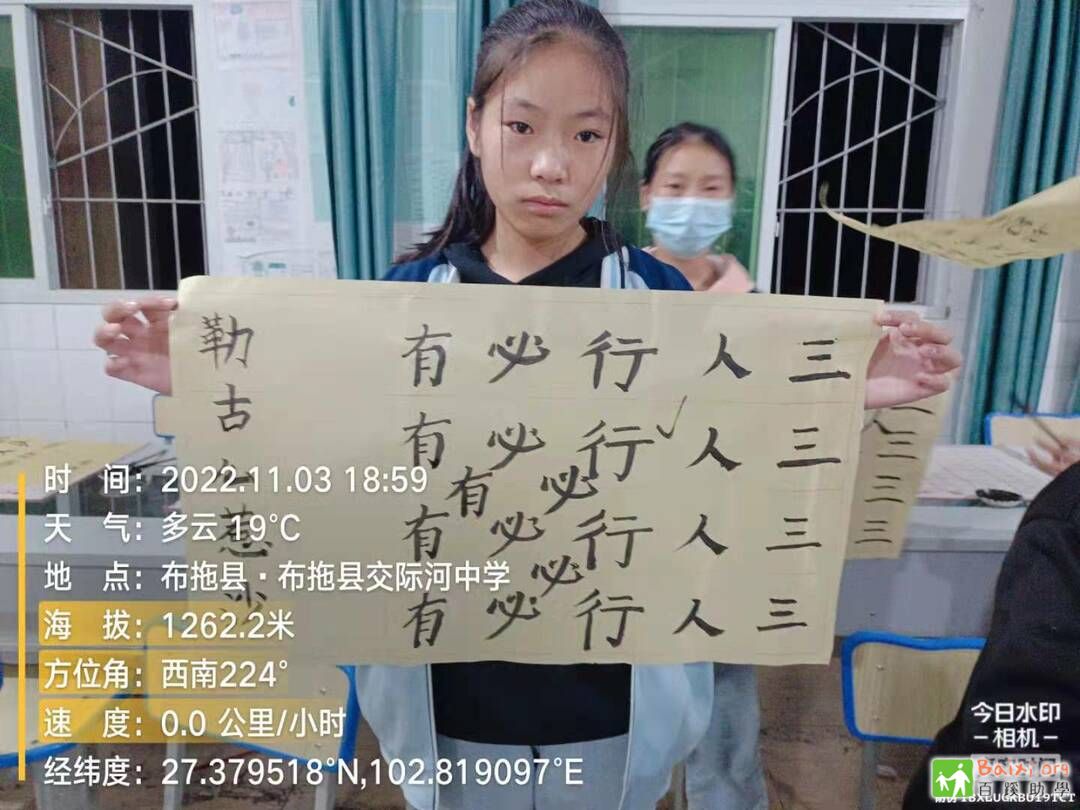 三三三三
人人人人
行行行行
必必必必必必
有有有有有
勒古
三三三
时 间：2022.11.03 18:59
天 气：多云 19℃
地 点：布拖县·布拖县交际河中学
海 拔：1262.2米
方位角：西南224°
速 度：0.0 公里/小时
经纬度：27.379518°N,102.819097°E
今日水印
-相机-
Baixi.org
百蹊助學